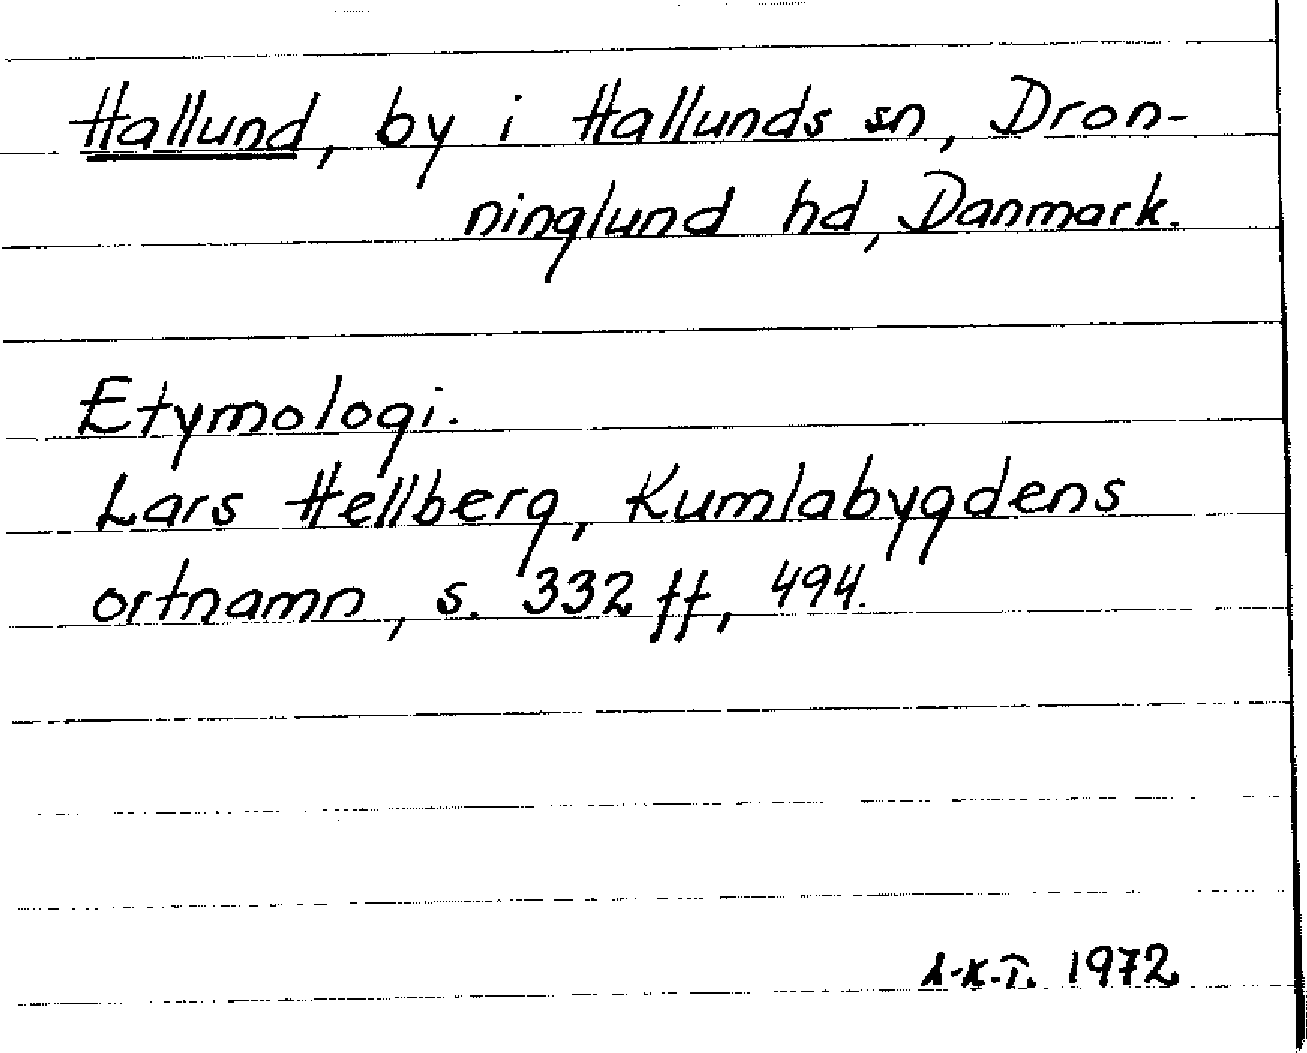 Hallund, by i Hallunds sn, Dron-
ninglund hd, Danmark.
Etymologi.
Lars Hellberg, Kumlabygdens
ortnamn, s. 332 ff, 494.
1972